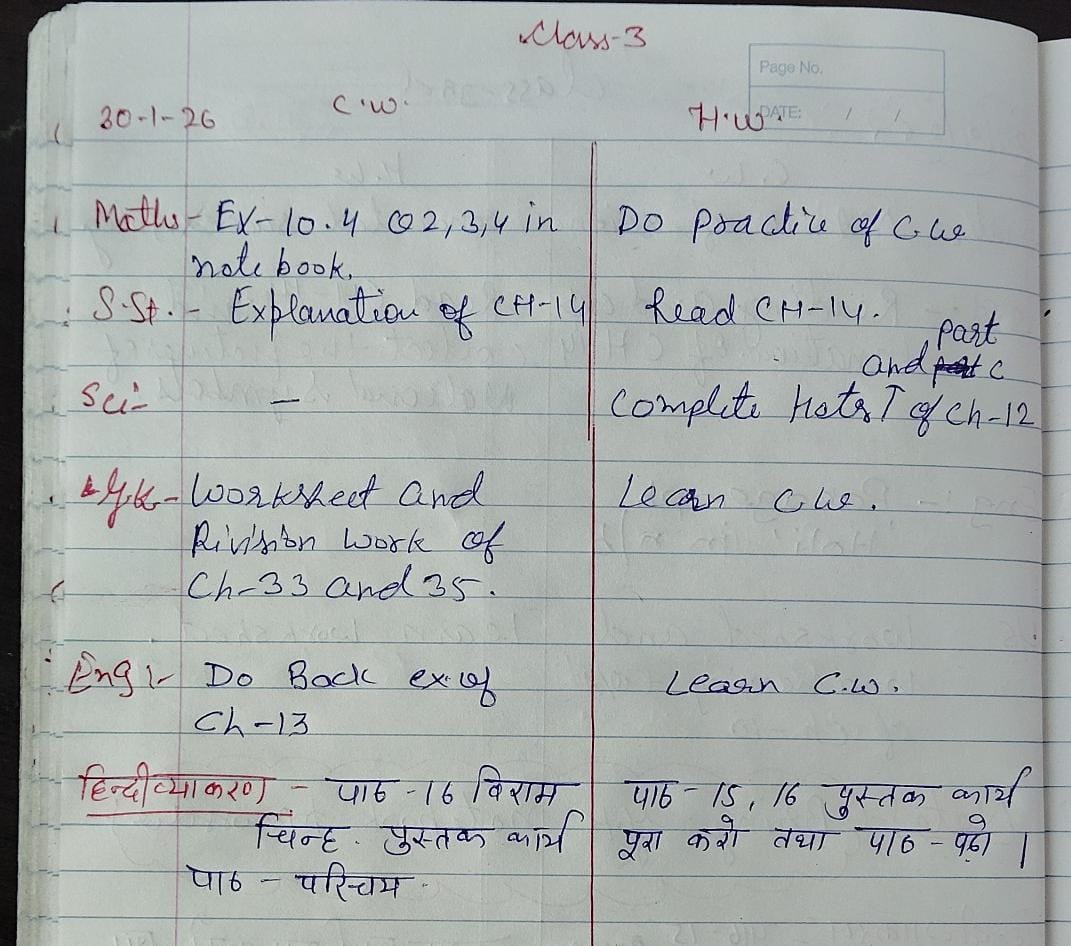 Class-3
Page No.
30-1-26 C.W. H.W. DATE: / /
Maths - Ex-10.4 Q2,3,4 in Do Practice of C.W
note book.
S.St. - Explanation of CH-14 Read CH-14.
part
and C
Sci- - Complete Hots of Ch-12
G.K - Worksheet and Learn C.W.
Rivision work of
Ch-33 and 35.
Eng :- Do Back ex. of Learn C.W.
Ch-13
हिन्दी व्याकरण - पाठ -16 विराम पाठ - 15, 16 पुस्तक कार्य
चिन्ह. पुस्तक कार्य पूरा करो तथा पाठ - पढ़ो ।
पाठ - परिचय.